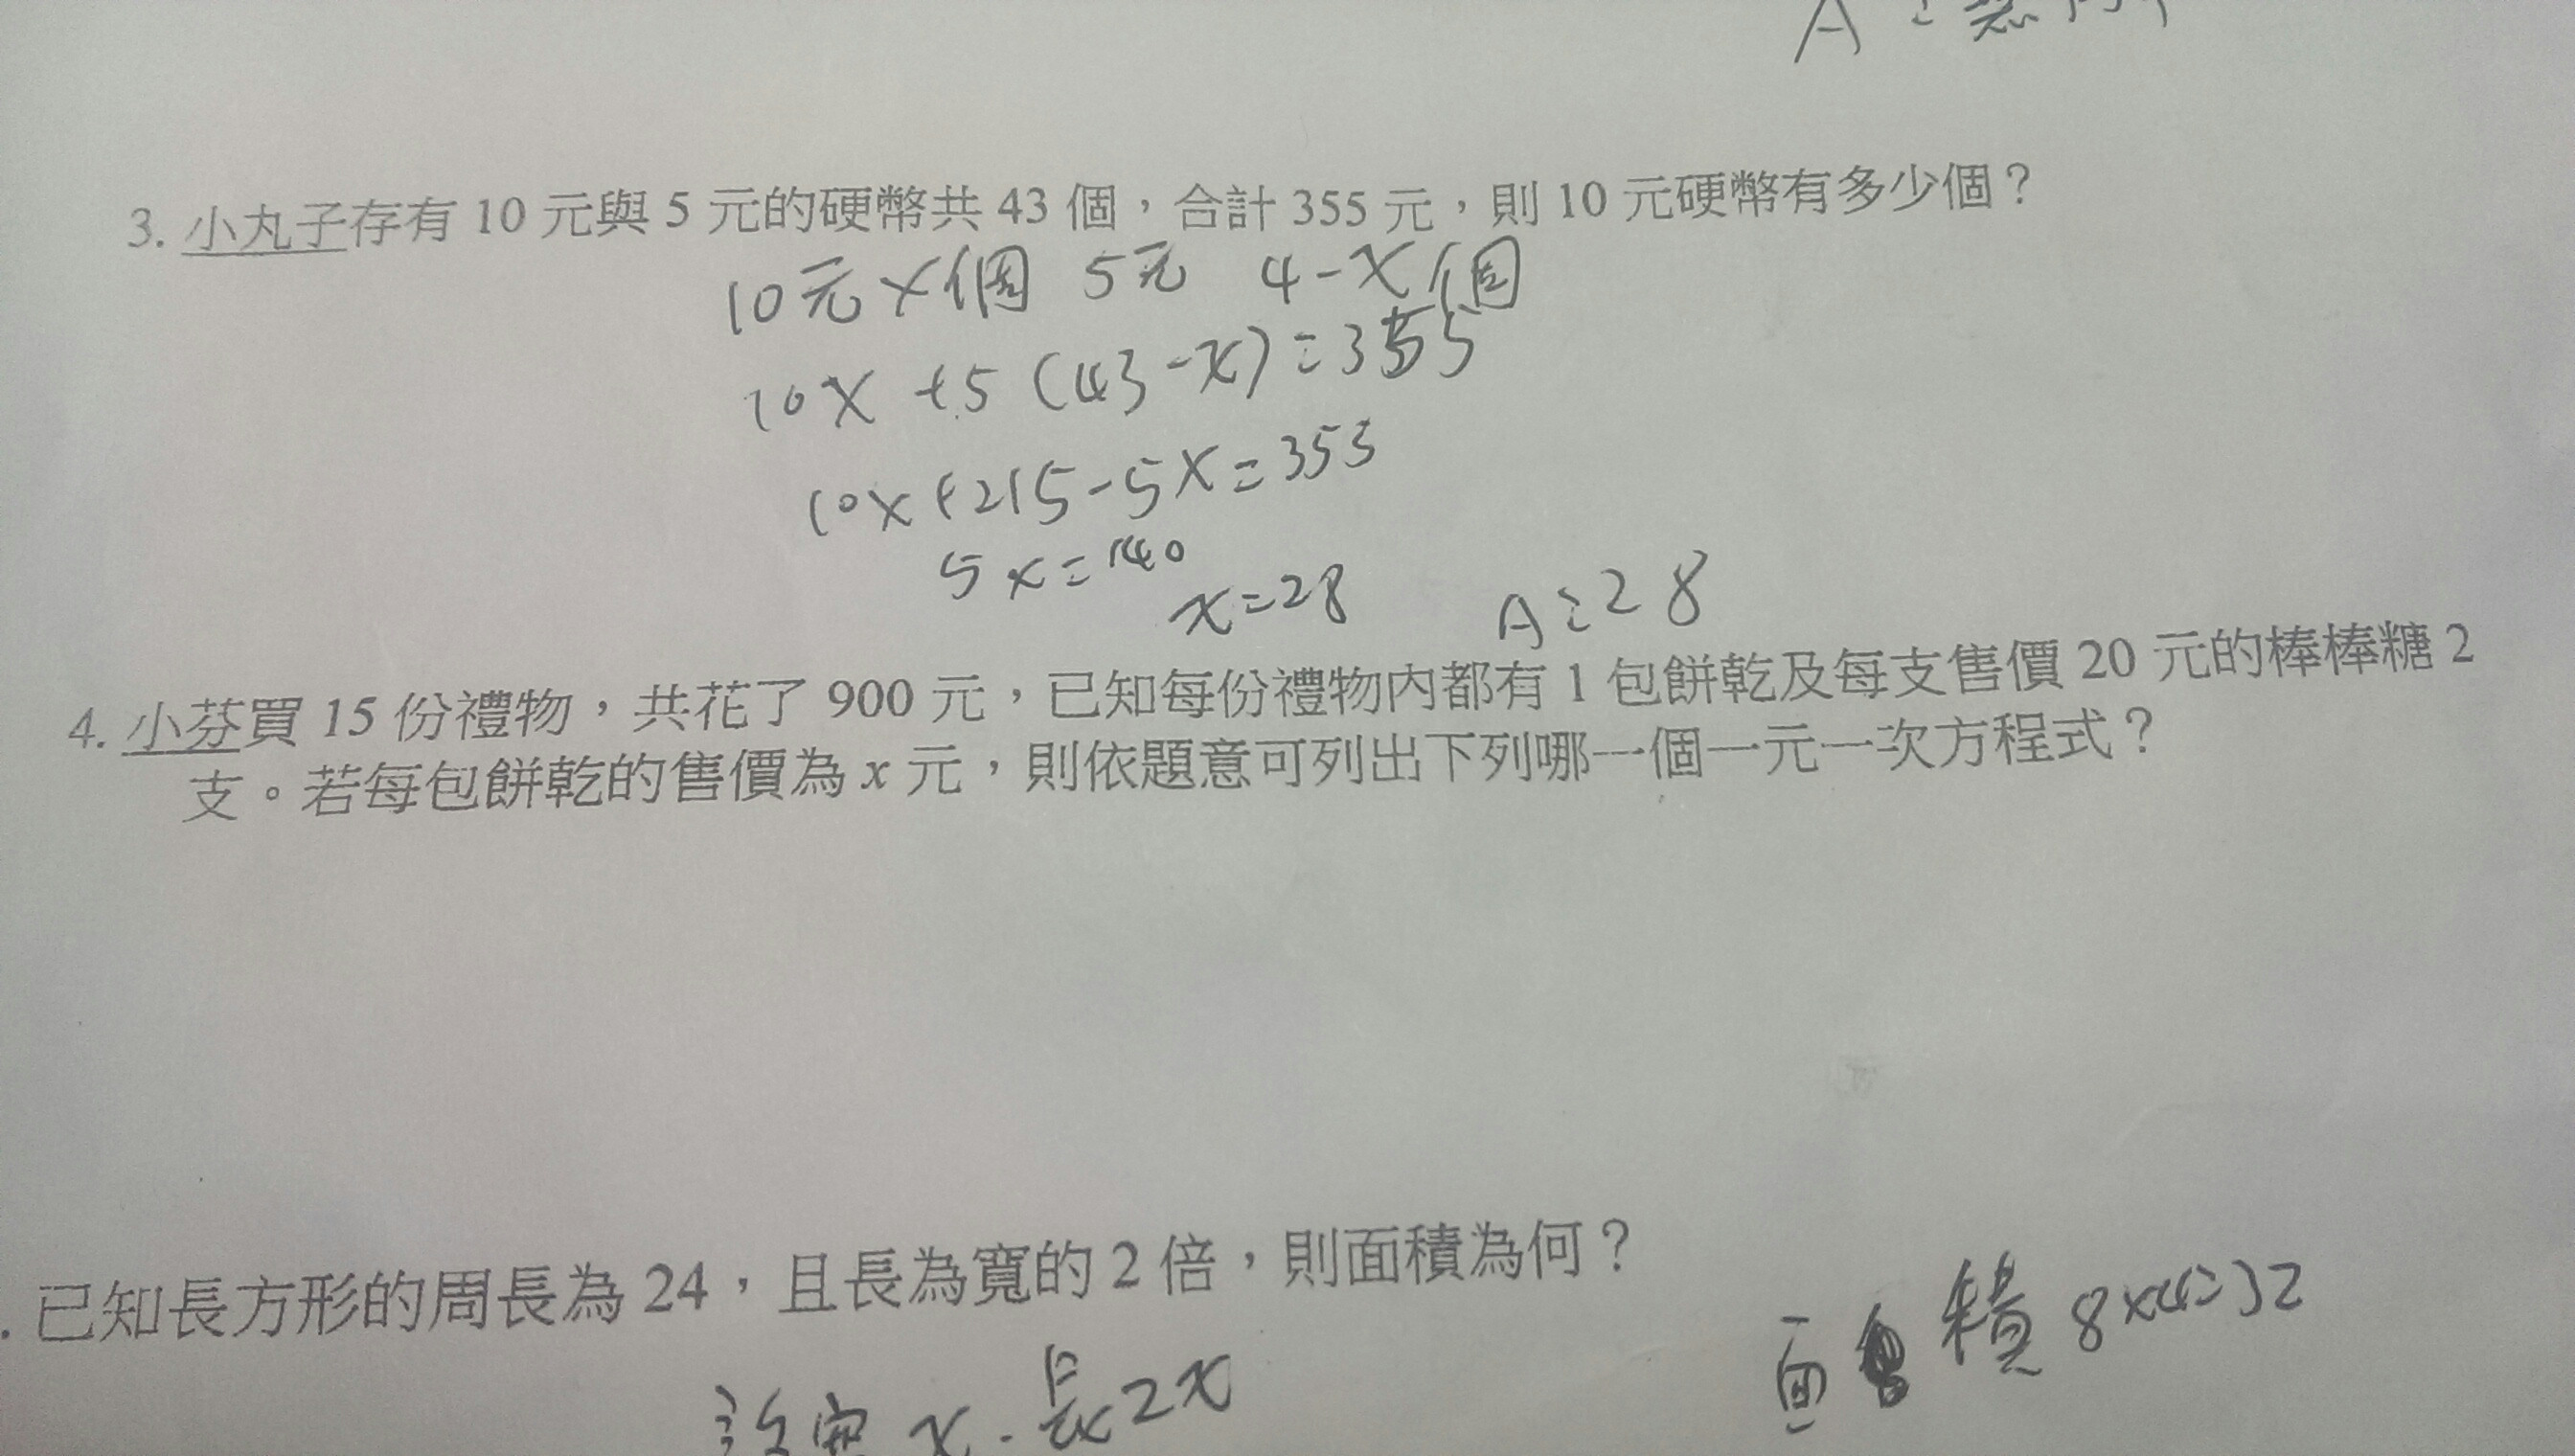 A:
3. 小丸子存有 10 元與 5 元的硬幣共 43 個，合計 355 元，則 10 元硬幣有多少個？
10元x個 5元 4-x個
10x+5(43-x)=355
10x+215-5x=355
5x=140
x=28 A:28
4. 小芬買 15 份禮物，共花了 900 元，已知每份禮物內都有 1 包餅乾及每支售價 20 元的棒棒糖 2
支。若每包餅乾的售價為 x 元，則依題意可列出下列哪一個一元一次方程式？
. 已知長方形的周長為 24，且長為寬的 2 倍，則面積為何？
面積 8x4=32
設寬 x. 長2x